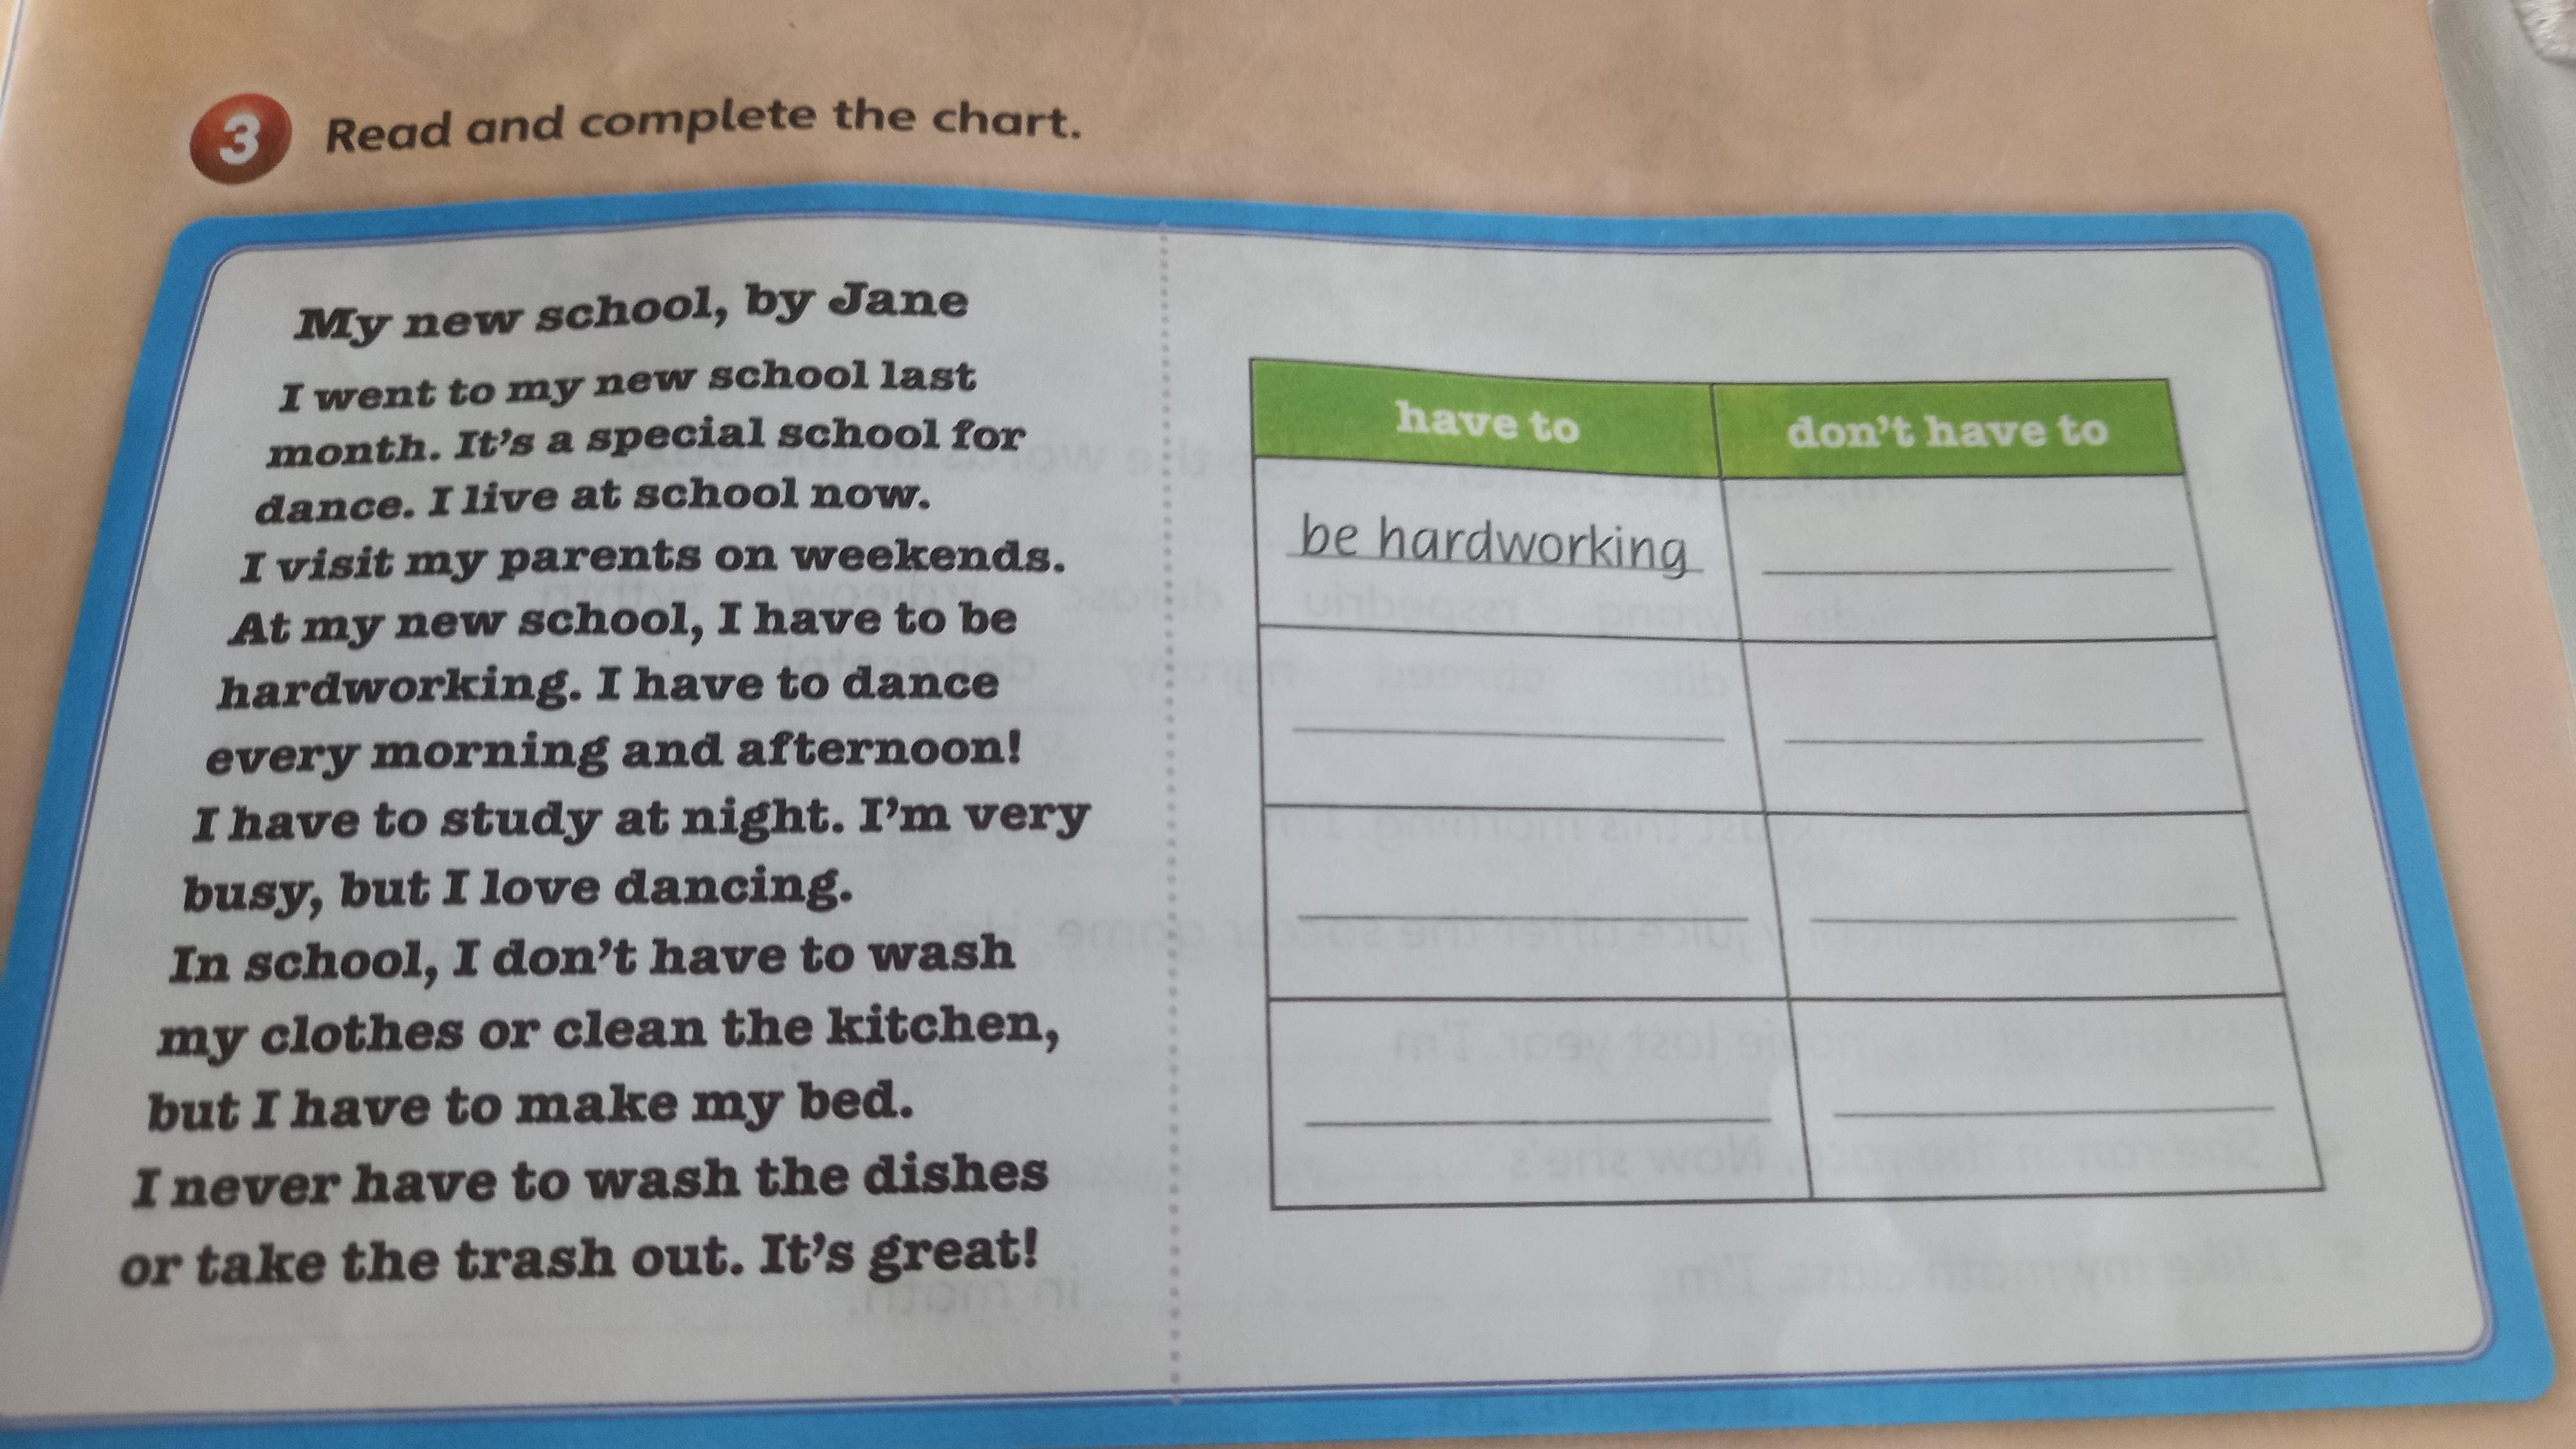 3 Read and complete the chart.
My new school, by Jane
I went to my new school last
month. It's a special school for
dance. I live at school now.
I visit my parents on weekends.
At my new school, I have to be
hardworking. I have to dance
every morning and afternoon!
I have to study at night. I'm very
busy, but I love dancing.
In school, I don't have to wash
my clothes or clean the kitchen,
but I have to make my bed.
I never have to wash the dishes
or take the trash out. It's great!
have to
don't have to
be hardworking